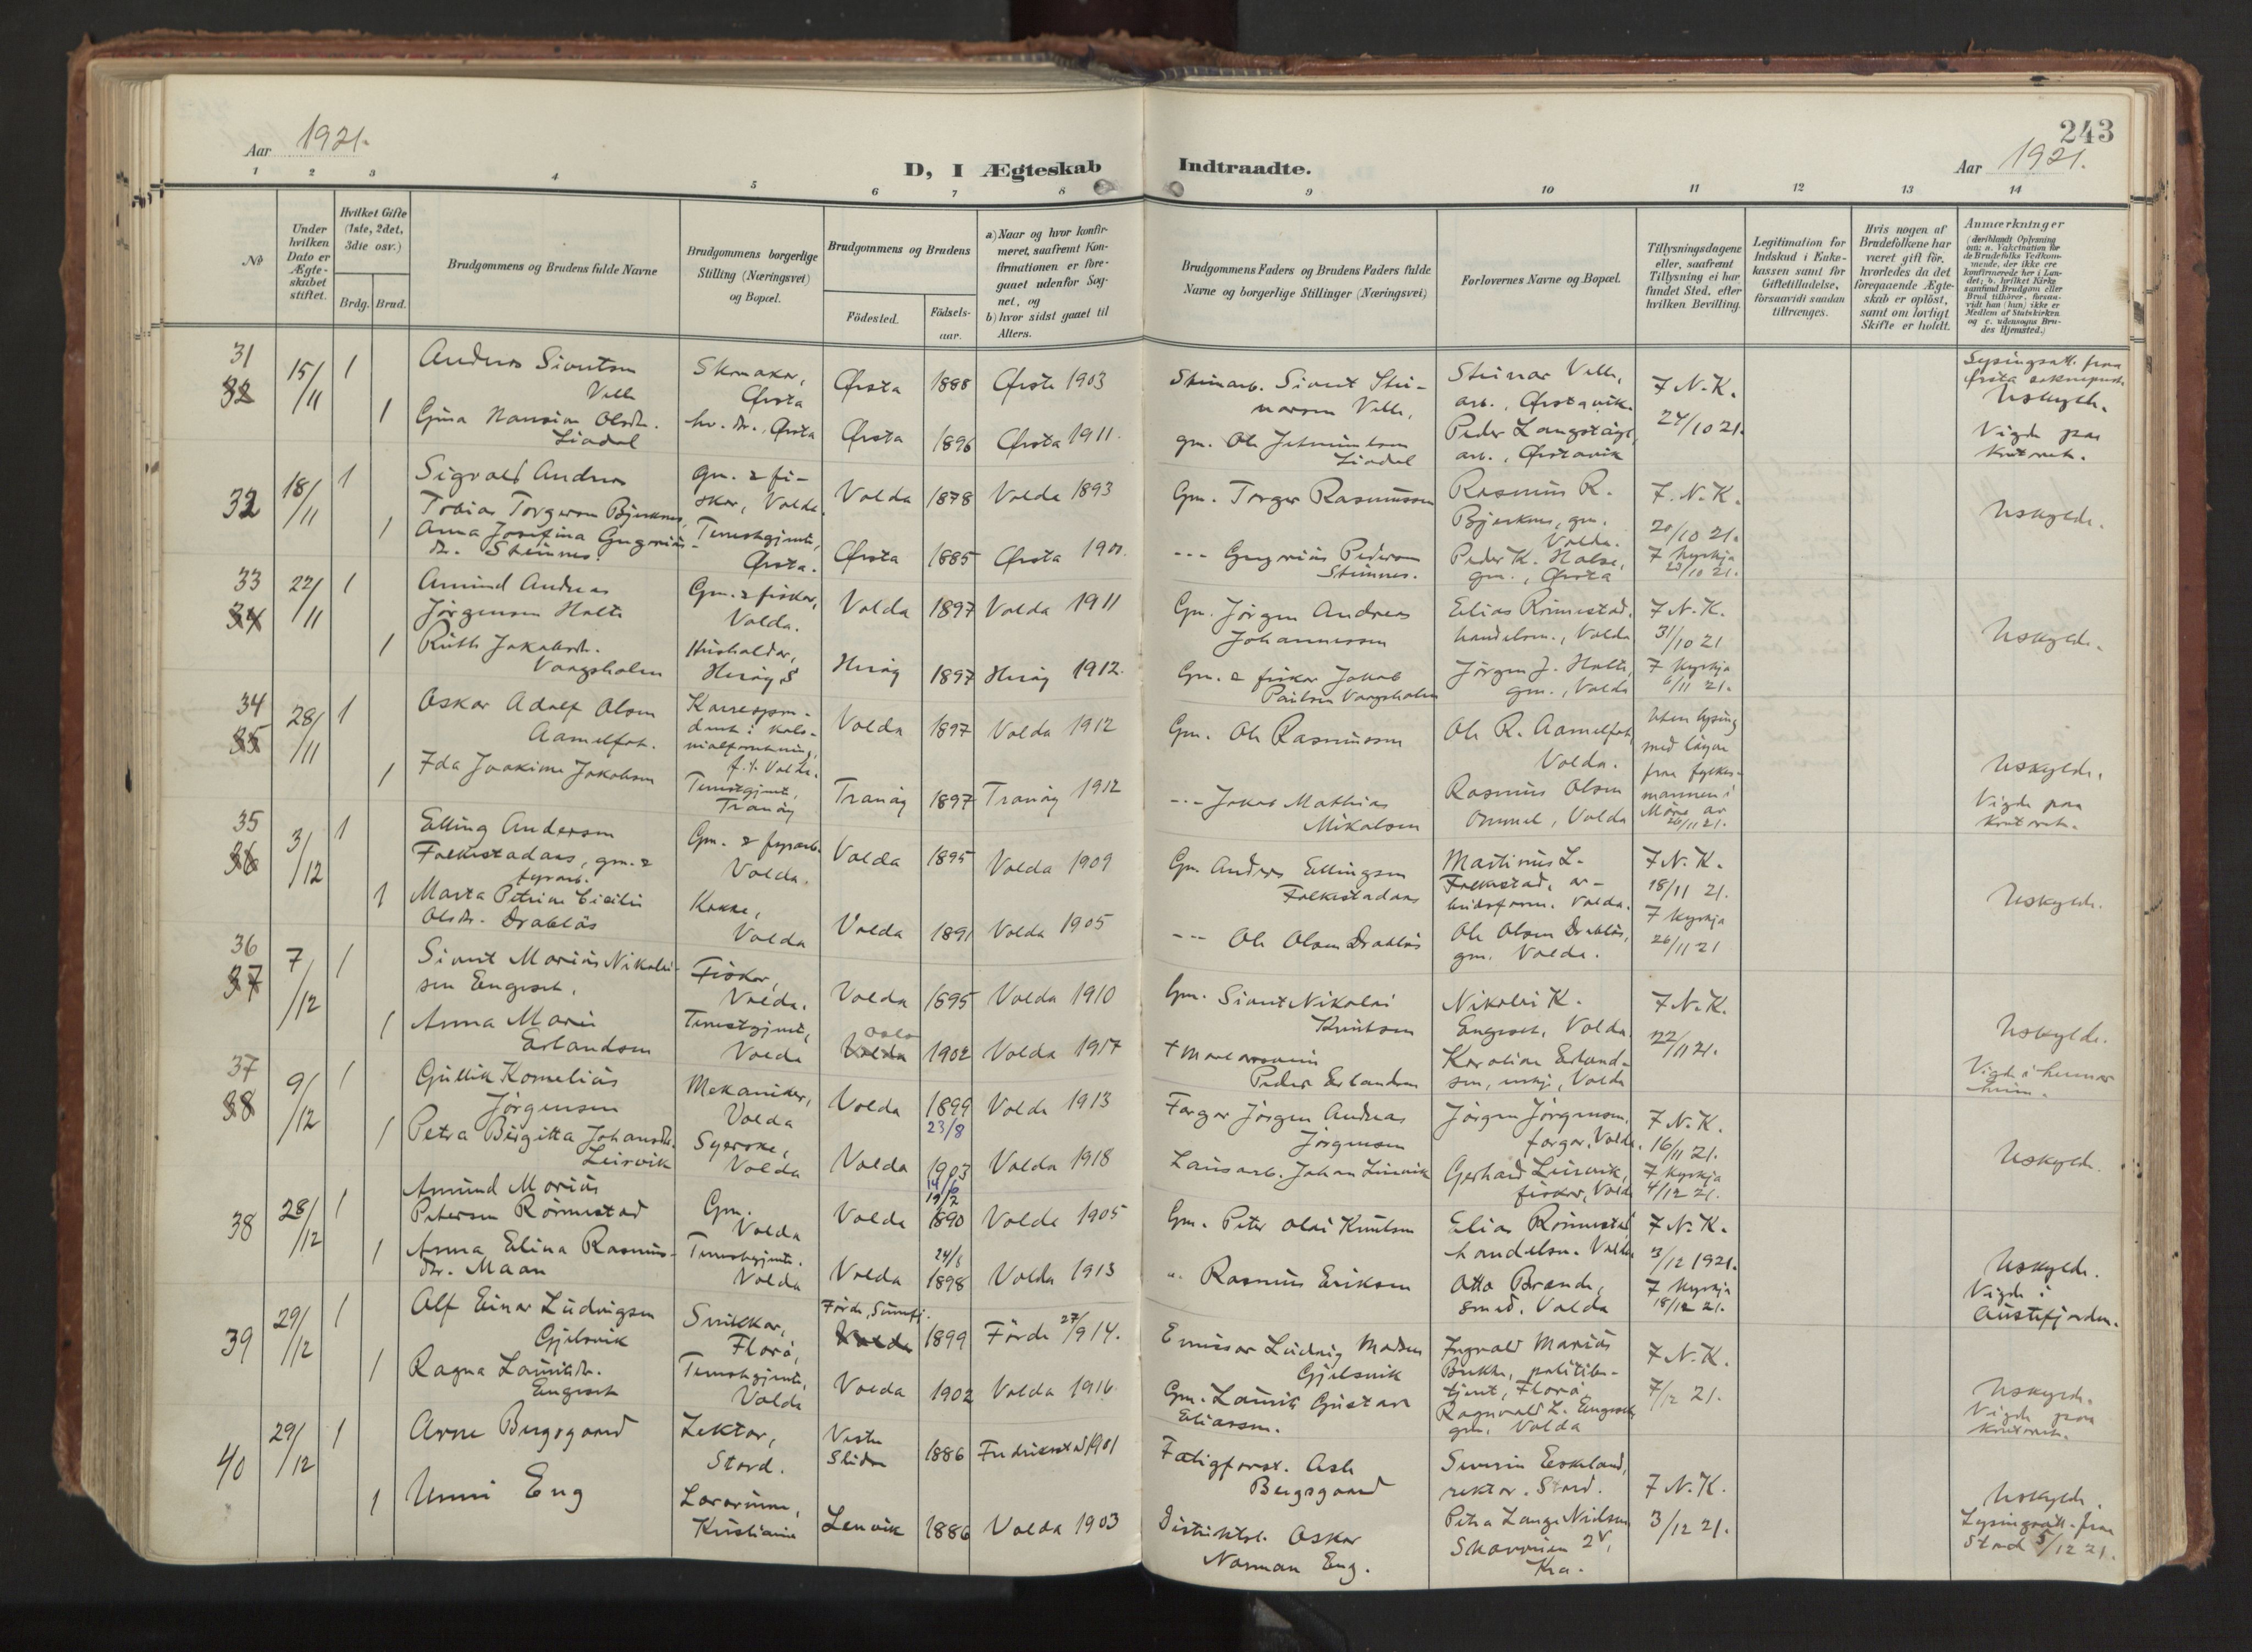 243
Aar 1921.
D, I Ægteskab Indtraadte.
Aar 1921.
1 2 3 4 5 6 7 8 9 10 11 12 13 14
No
Under hvilken Dato er Ægteskabet stiftet.
Hvilket Gifte (1ste, 2det, 3die osv.)
Brdg. Brud.
Brudgommens og Brudens fulde Navne
Brudgommens borgerlige Stilling (Næringsvei) og Bopæl.
Brudgommens og Brudens
Födested.
Födsels-aar.
a) Naar og hvor konfirmeret, saafremt Konfirmationen er foregaaet udenfor Sognet, og
b) hvor sidst gaaet til Alters.
Brudgommens Faders og Brudens Faders fulde Navne og borgerlige Stillinger (Næringsvei)
Forlovernes Navne og Bopæl.
Tillysningsdagene eller, saafremt Tillysning ei har fundet Sted, efter hvilken Bevilling.
Legitimation for Indskud i Enkekassen samt for Giftetilladelse, forsaavidt saadan tiltrænges.
Hvis nogen af Brudefolkene har været gift för, hvorledes da det foregaaende Ægteskab er oplöst, samt om lovligt Skifte er holdt.
Anmærkninger
(deriblandt Oplysning om: a. Vakcination for de Brudefolks Vedkommende, der ikke ere konfirmerede her i Landet; b. hvilket Kirkesamfund Brudgom eller Brud tilhörer, forsaavidt han (hun) ikke er Medlem af Statskirken og c. udensogns Brudes Hjemsted.)
31
32
15/11 1 Anders Sivertsen
Velle
Skomakar,
Ørsta
Ørsta 1888 Ørsta 1903
Steinarb. Sivert Steinarsen Velle,
Steinar Velle,
arb., Ørstavik.
7 N.K.
24/10 21.
Lysingsatt. fraa
Ørsta
Uskylde.
1 Gina Nansine Olsdtr.
Liadal
hv. dtr., Ørsta
Ørsta 1896 Ørsta 1911.
gm. Ole
Liadal
Peder
arb., Ørstavik
Vigde paa
kontoret.
32
18/11 1 Sigvald Andreas
Tobias Torgersen Bjerknes,
gm. & fiskar, Volda.
Volda 1878 Volda 1893
Gm. Torger Rasmussen
Rasmus R.
Bjerknes, gm.
Volda.
7. N.K.
20/10 21.
Uskylde.
1 Anna Josefina Gregoriusdtr. Steinnes.
Tenestgjente,
Ørsta.
Ørsta 1885 Ørsta
--- Gregorius Pedersen
Steinnes.
Peder K. Halse,
gm., Ørsta
7 kyrkja
23/10 21.
33
34
22/11 1 Amund Andreas
Jørgensen Holte
Gm. & fiskar,
Volda.
Volda 1897 Volda 1911
Gm. Jørgen Andreas
Johannessen
Elias Rønnestad,
handelsm., Volda
7 N.K.
31/10 21
Uskylde.
1 Ruth Jakobsdtr.
Vaagsholm
Hushaldar,
Herøy S
Herøy 1897 Herøy 1912.
Gm. & fiskar Jakob
Paulsen Vaagsholm
Jørgen J. Holte,
gm., Volda
7 kyrkja
6/11 21.
34
35
28/11 1 Oskar Adolf Olsen
Aamelfot.
Volda 1897 Volda 1912
Gm. Ole Rasmussen
Ole R. Aamelfot,
Volda.
Uten lysing
med løyve
fraa fylkesmannen i
Møre av
26/11 21.
Uskylde.
1 Ida Joakime Jakobsen
Tenestgjente,
Tranøy
Tranøy 1897 Tranøy 1912
--- Jakob Mathias
Mikalsen
Rasmus Olsen
Volda
Vigde paa
kontoret.
35
36
3/12 1 Elling Andersen
Folkestadaas, gm. &
fyrarb.
Gm. & fyrarb.
Volda.
Volda 1895 Volda 1909
Gm. Anders Ellingsen
Folkestadaas
Martinus L.
Folkestad, arbeidsform. Volda.
7 N.K.
18/11 21.
Uskylde.
1 Marta Petrine Cicilie
Olsdtr. Drabløs
Kokke,
Volda
Volda 1891 Volda 1905
--- Ole Olsen Drabløs
Ole Olsen Drabløs,
gm. Volda.
7 kyrkja
26/11 21
36
37
7/12 1 Sivert Marius Nikolaisen Engeset.
Fiskar,
Volda.
Volda 1895 Volda 1910
Gm. Sivert Nikolai
Knutsen
Nikolai K.
Engeset, Volda.
7 N.K.
22/11 21.
Uskylde.
1 Anna Marie
Erlandsen
Tenestgjente,
Volda
Oslo
Volda
1902 Volda 1917
Peder Erlandsen
Karoline Erlandsen, Volda
Vigde i
heim.
37
38
9/12 1 Gullik Kornelius
Jørgensen
Mekaniker,
Volda
Volda 1899
23/8
Volda 1913
Farger Jørgen Andreas
Jørgensen
Jørgen Jørgensen,
farger, Volda.
7 N.K.
16/11 21.
Uskylde.
1 Petra Birgitta Johansdtr.
Leirvik
Syerske,
Volda
Volda 1903
14/6
Volda 1918
Lausarb. Johan Leirvik
Gerhard Leirvik,
fiskar, Volda
7 kyrkja
4/12 21.
38
28/12 1 Amund Marius
Petersen Rønnestad
Gm.
Volda
Volda
19/2
1890 Volda 1905
Gm. Peter Olai Knutsen
Elias Rønnestad
handelsm. Volda
7 N.K.
3/12 1921.
Uskylde.
1 Anna Elina Rasmusdtr. Maan
Tenestgjente.
Volda
Volda
24/5
1898 Volda 1913
" Rasmus Eriksen
Otto Brande,
smed, Volda
7 kyrkja
18/12 21.
Vigde i
Austefjorden.
39
29/12 1 Alf Einar Ludvigsen
Gjelsvik
Snikkar,
Florø,
Førde, Sunnfj.
Volda
1899 Førde 27/9 14.
Emissær Ludvig Madsen
Gjelsvik
Ingvald Marius
politibetjent, Florø
7 N.K.
7/12 21.
Uskylde.
1 Ragna Lauritsdtr.
Engeset
Tenestgjente,
Volda
Volda 1902 Volda 1916.
Gm. Laurits Gustav
Eliassen.
Ragnvald L. Engeset,
gm. Volda
Vigde paa
kontoret.
40
29/12 1 Arne Bergsgaard
Lektor,
Stord.
Vestre
Slidre
1886 Fredrikstad 1901
Fatigforst. Asle
Bergsgaard
Severin Eskeland,
rektor. Stord.
7 N.K.
3/12 21.
Uskylde.
Lysingsatt. fraa
Stord 5/12 21.
1 Unni Eng
Lærarinne,
Kristiania
Lenvik 1886 Volda 1903
Distriktsl. Oskar
Norman Eng.
Petra Lange Nielsen
Kra.